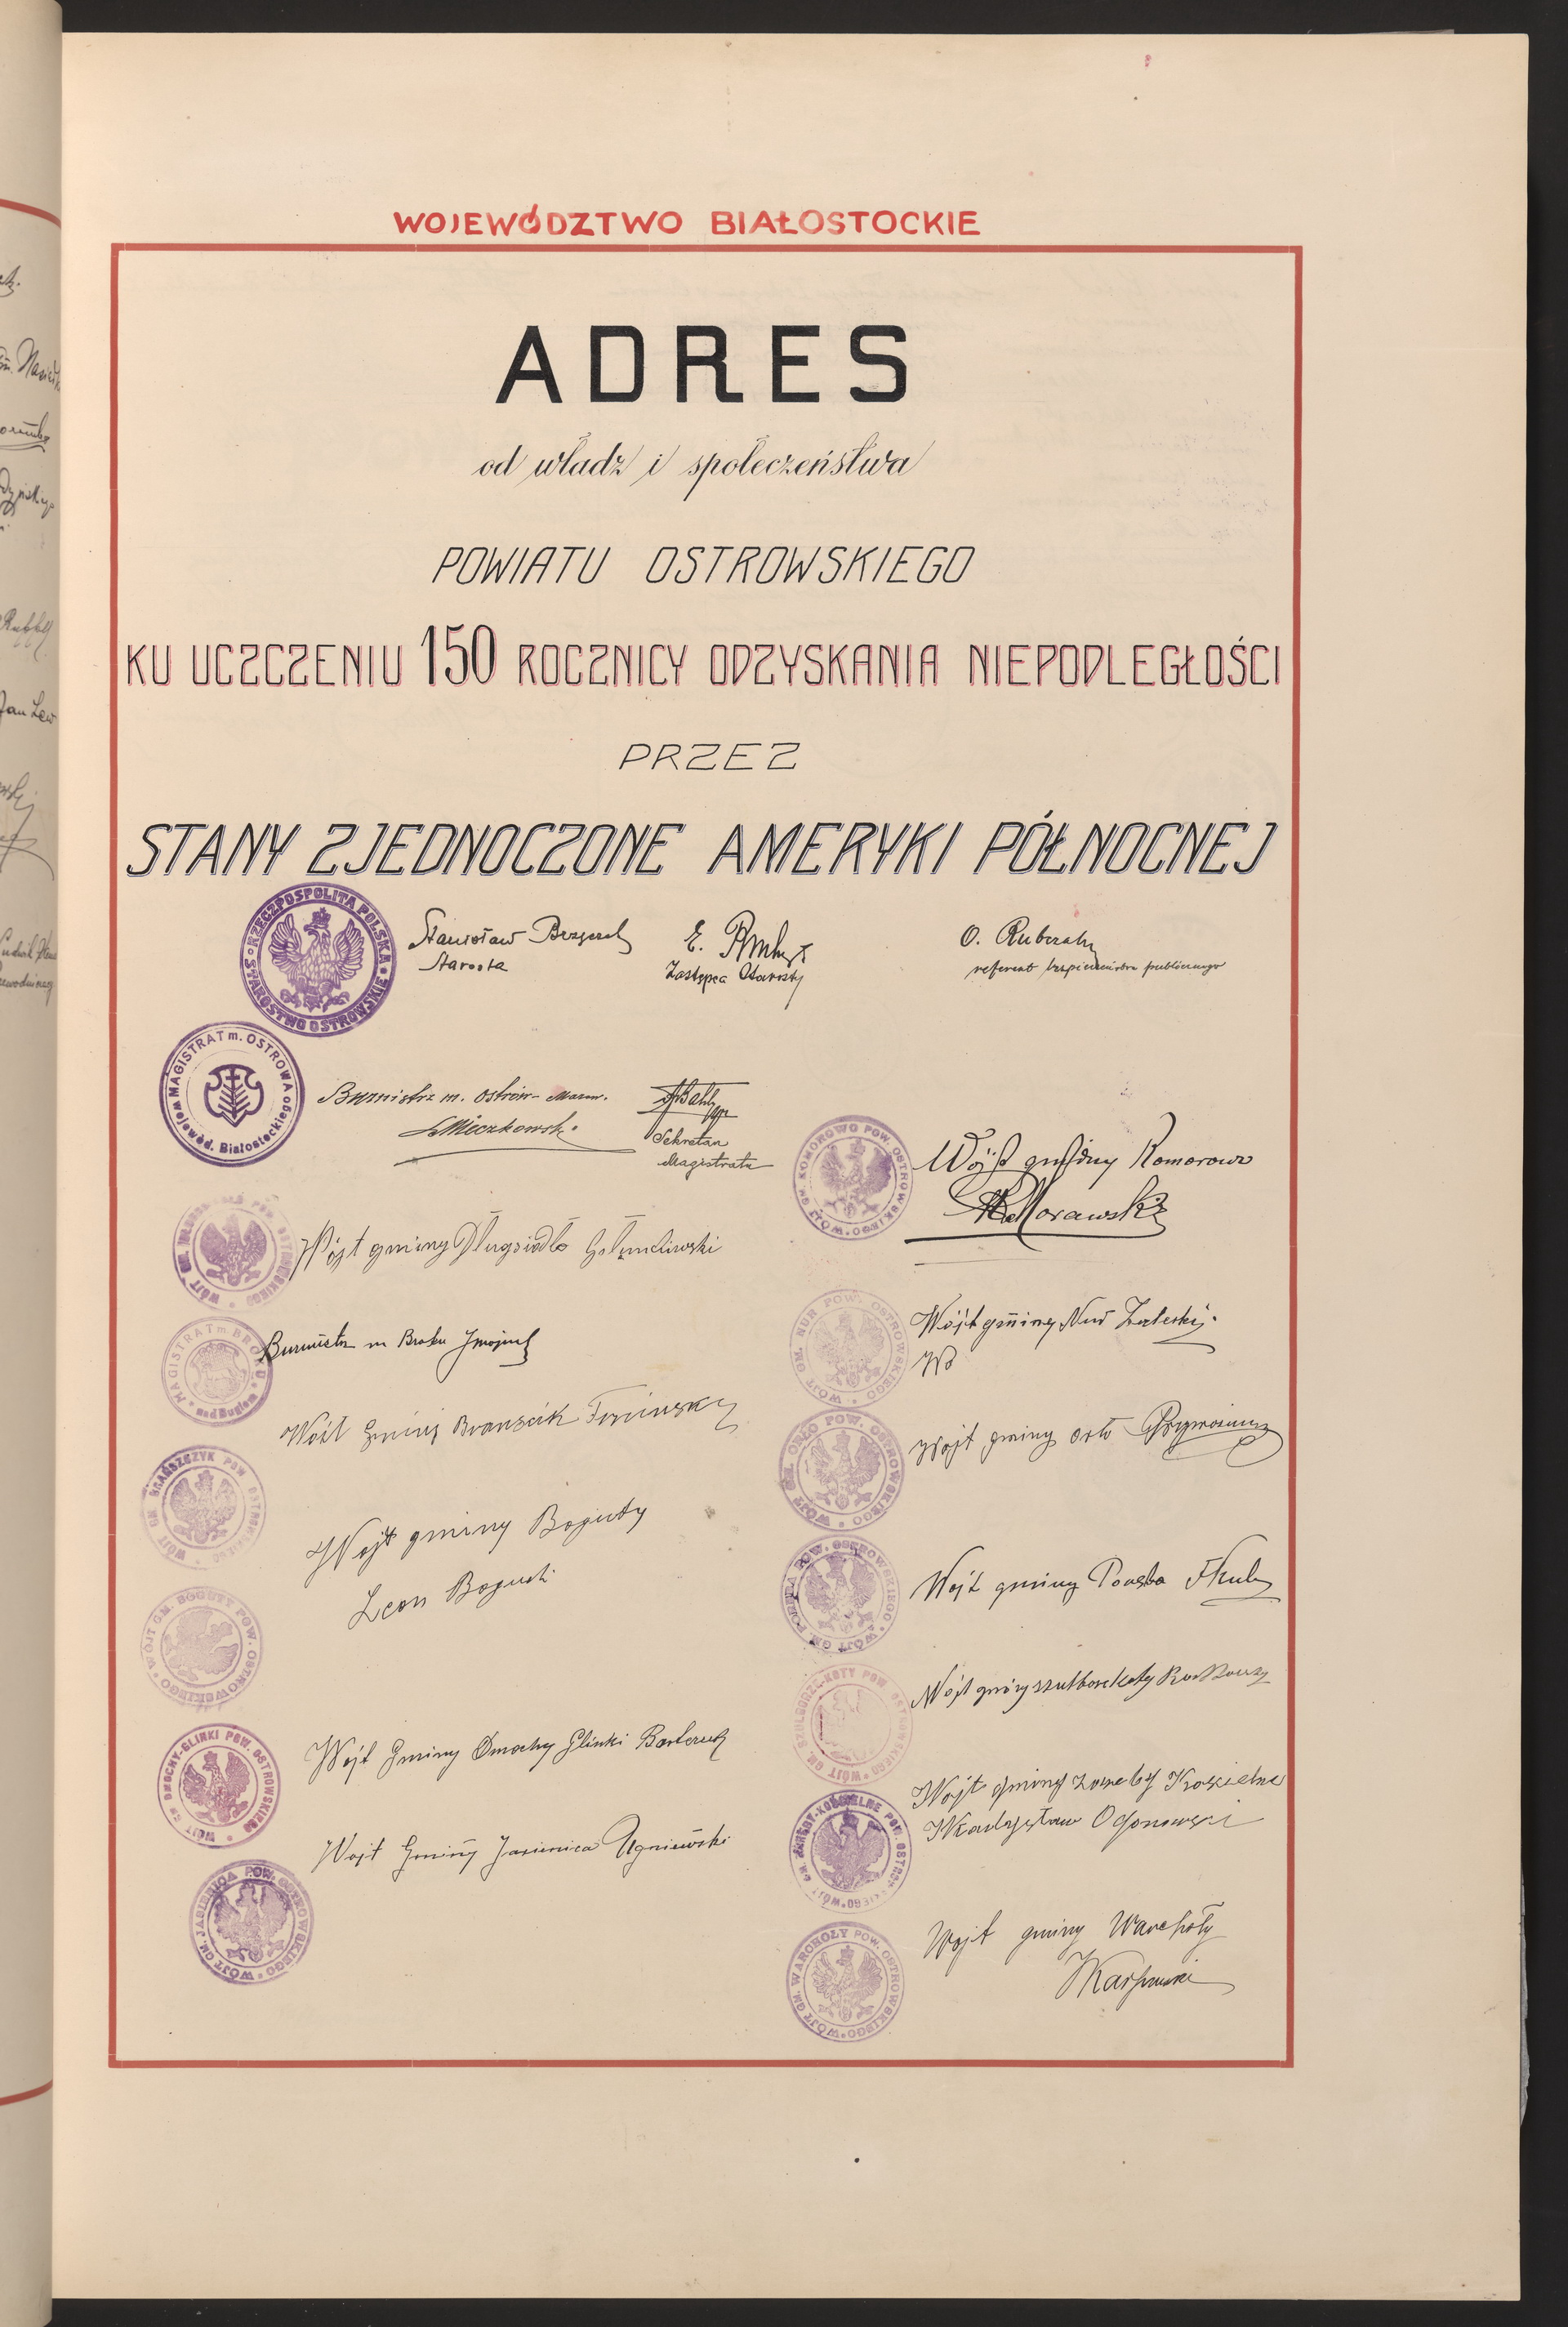 WOJEWÓDZTWO BIAŁOSTOCKIE
ADRES
od władz i społeczeństwa
POWIATU OSTROWSKIEGO
KU UCZCZENIU 150 ROCZNICY ODZYSKANIA NIEPODLEGŁOŚCI
PRZEZ
STANY ZJEDNOCZONE AMERYKI PÓŁNOCNEJ
RZECZPOSPOLITA POLSKA
STAROSTWO OSTROWSKIE
Stanisław
Starosta
E.
Zastępca Starosty
O.
referent bezpieczeństwa publicznego
MAGISTRAT m. OSTROWA
Wojewód. Białostockiego
Burmistrz m. Ostrów- Mazow.
Mieczkowski
Sekretarz
Magistratu
WÓJT GM. KOMOROWO POW. OSTROWSKIEGO
Wójt gminy Komorowo
Morawski
WÓJT GM. POW. OSTROWSKIEGO
Wójt gminy Długsiodło
MAGISTRAT m BROKU
nad Bugiem
Burmistrz m Broku
WÓJT GM. NUR POW. OSTROWSKIEGO
Wójt gminy Nur Zaleski
WÓJT GM. BRAŃSZCZYK POW OSTROWSKIEGO
Wójt Gminy
WÓJT GM. ORŁO POW. OSTROWSKIEGO
Wójt gminy Orło
WÓJT GM. BOGUTY POW. OSTROWSKIEGO
Wójt gminy Boguty
Leon Bogucki
WÓJT GM. PORĘBA POW. OSTROWSKIEGO
Wójt gminy Poręba
WÓJT GM. SZULBORZE-KOTY POW OSTROWSKIEGO
Wójt gminy
WÓJT GM DMOCHY-GLINKI POW. OSTROWSKIEGO
Wójt Gminy Dmochy Glinki
WÓJT GM. ZARĘBY-KOŚCIELNE POW. OSTROWSKIEGO
Wójt gminy Zaręby Kościelne
WÓJT GM. JASIENICA POW. OSTROWSKIEGO
Wojt Gminy Jasienica Ugniewski
WÓJT GM. WARCHOŁY POW. OSTROWSKIEGO
Wojt gminy Warchoły